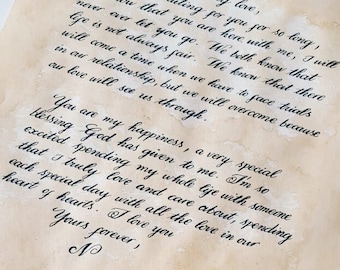 waiting for you for so long,
now that you are here with me, I will
never ever let you go. We both know that
life is not always fair. We know that there
will come a time when we have to face trials
in our relationship but we will overcome because
our love will see us through.
You are my happiness, a very special
blessing God has given to me. I'm so
excited spending my whole life with someone
that I truly love and care about, spending
each special day with all the love in our
heart of hearts. I love you
Yours forever,
N